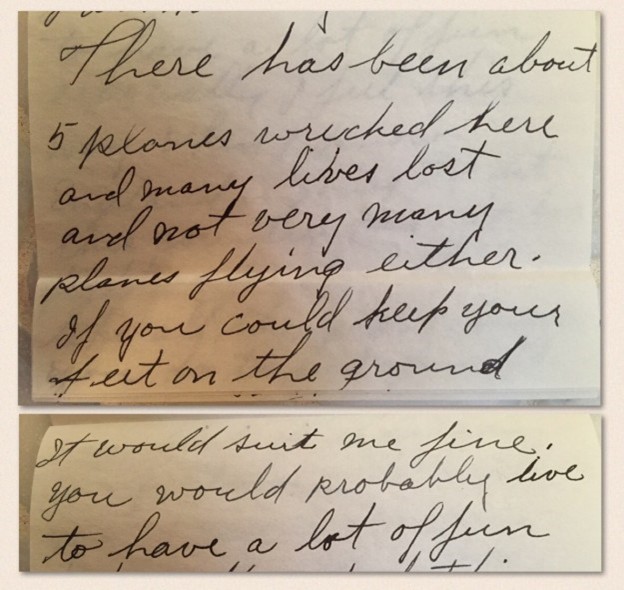 There has been about
5 planes wrecked here
and many lives lost
and not very many
planes flying either.
If you could keep your
feet on the ground
It would suit me fine.
You would probably live
to have a lot of fun